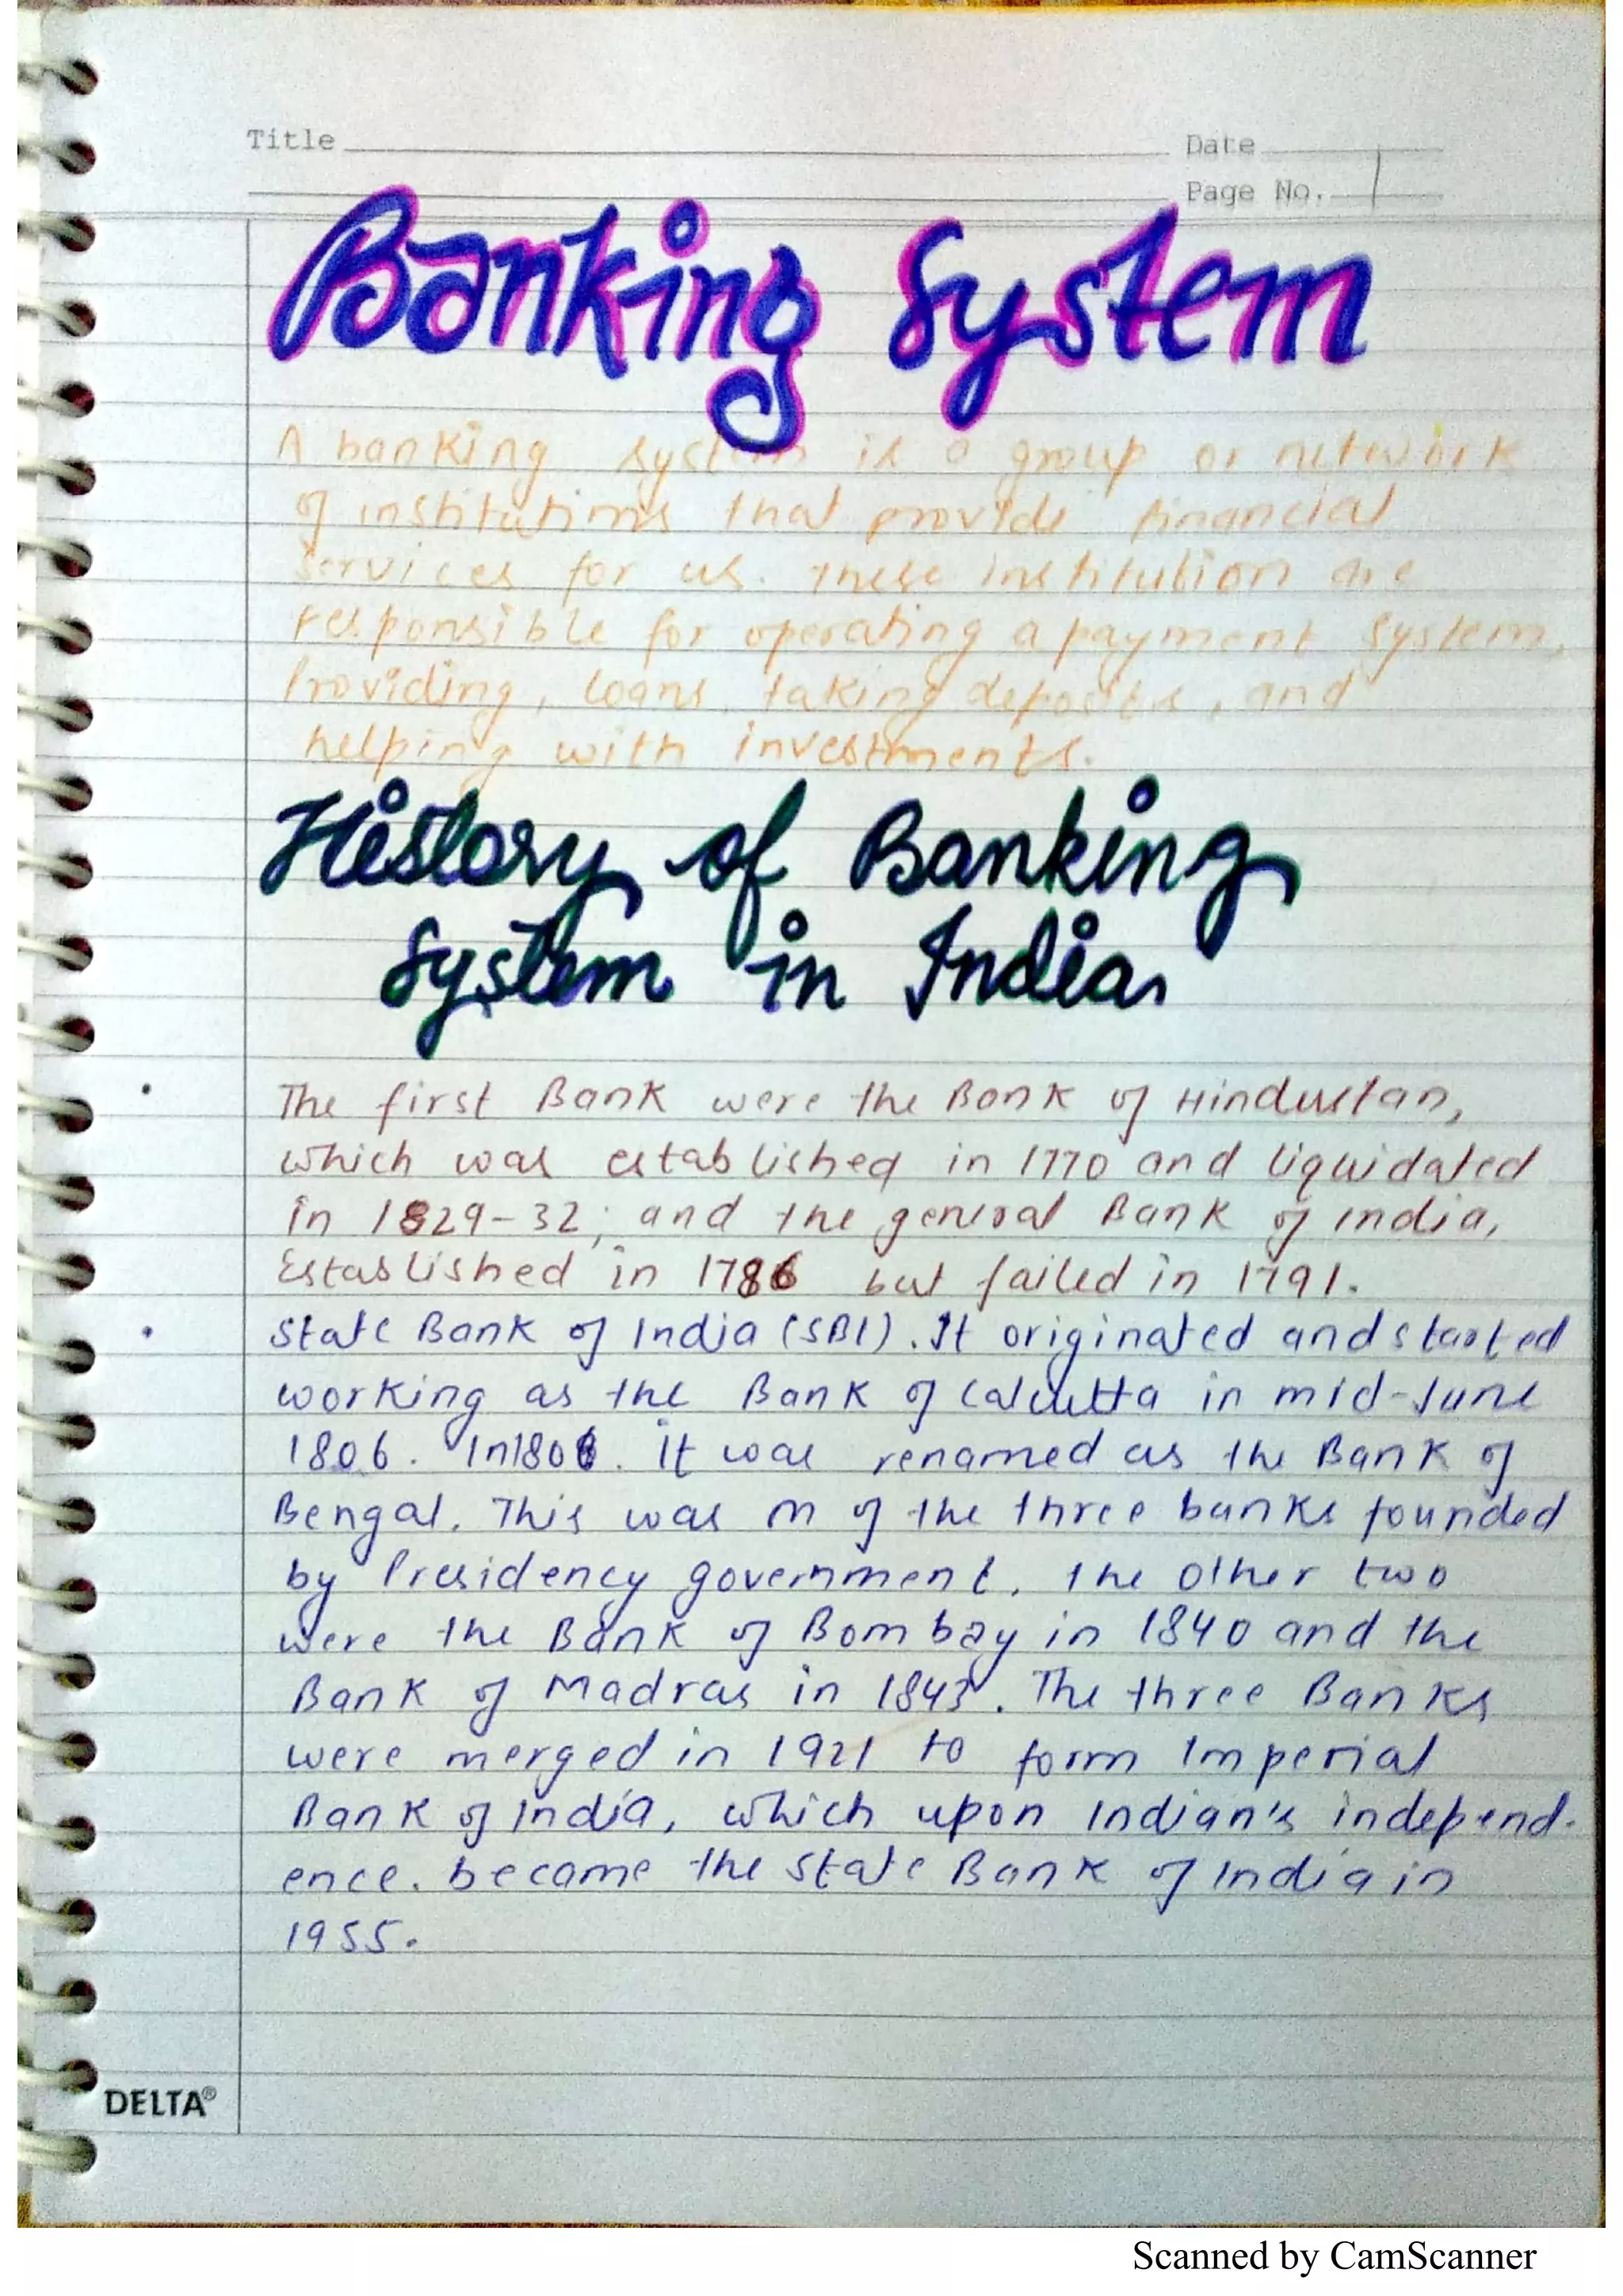 Title
Date
Page No. 1
Banking System
A banking system is a group or network
of institutions that provide financial
services for us. These institution are
responsible for operating a payment system,
Providing, loans, taking deposits, and
helping with investments.
History of Banking
System in India
• The first Bank were the Bank of Hindustan,
which was established in 1770 and liquidated
in 1829-32; and the general Bank of india,
Established in 1786 but failed in 1791.
• State Bank of India (SBI). It originated and started
working as the Bank of Calcutta in mid-June
1806. In 180 . it was renamed as the Bank of
Bengal. This was of the three banks founded
by Presidency government, the other two
were the Bank of Bombay in 1840 and the
Bank of Madras in 1843. The three Banks
were merged in 1921 to form Imperial
Bank of India, which upon Indian's independ-
ence. become the State Bank of India in
1955.
DELTA®
Scanned by CamScanner